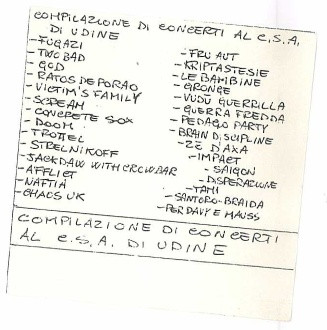 COMPILAZIONE DI CONCERTI AL C.S.A.
DI UDINE
-FUGAZI
-TWO BAD
-GOD
-RATOS DE PORAO
-VICTIM'S FAMILY
-SCREAM
-CONCRETE SOX
-DOOM
-TROTTEL
-STRELNIKOFF
-JACKDAW WITH CROWBAR
-AFFLICT
-NAFTIA
-CHAOS UK
-FRU AUT
-KRIPTASTESIE
-LE BAMBINE
-GRONGE
-VUDÙ GUERRILLA
-GUERRA FREDDA
-PEDAGO PARTY
-BRAIN DISCIPLINE
-ZÈ D'AXA
-IMPACT
-SAIGON
-DISPERAZIONE
-TAMI
-SANTORO-BRAIDA
-PER DAVY E MAUSS
COMPILAZIONE DI CONCERTI
AL C.S.A. DI UDINE